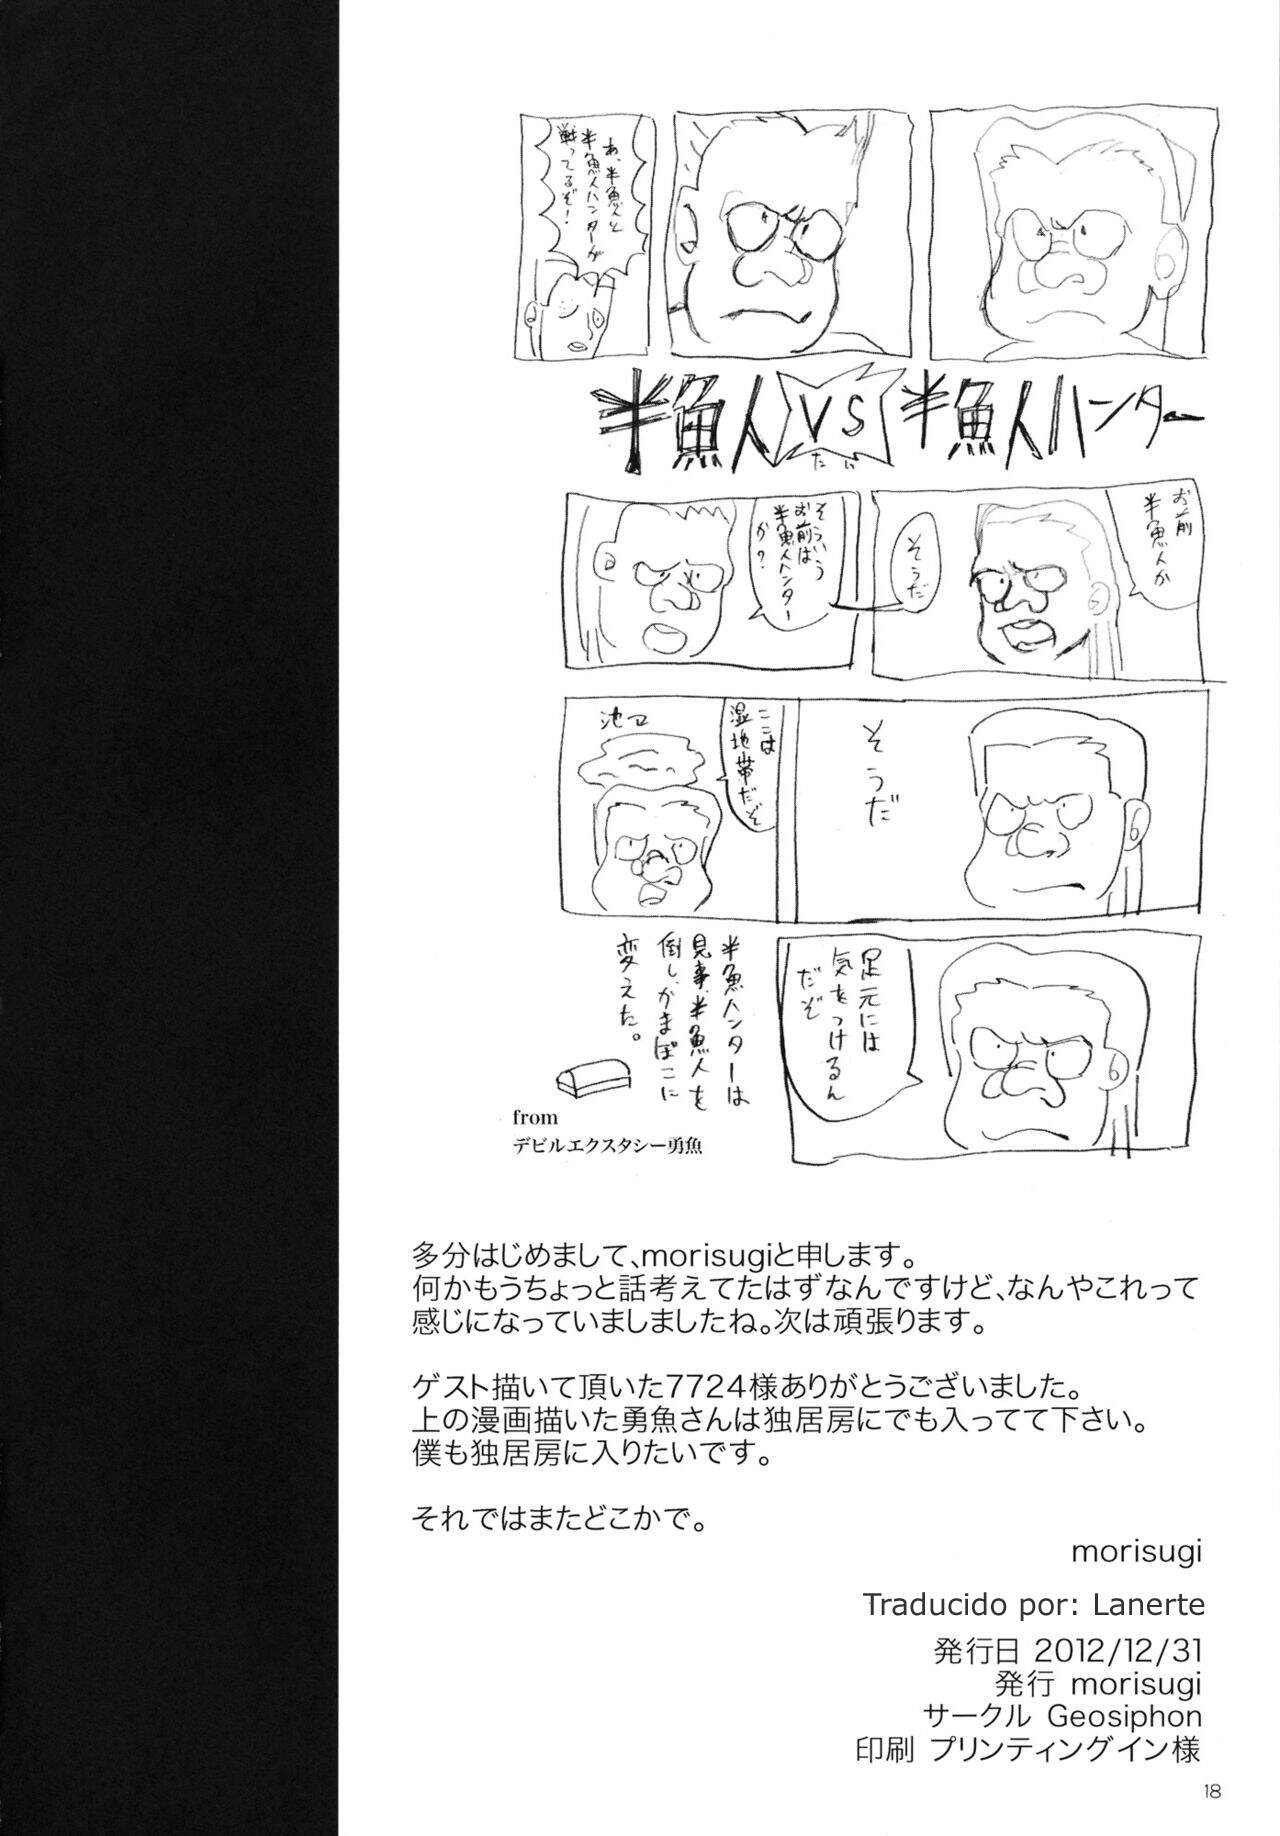 あ、半魚人と
半魚人ハンターが
戦ってるぞ!
半魚人VS半魚人ハンター
たい
お前
半魚人か
そうだ
そういう
お前は
半魚人ハンター
か?
そうだ
ここは
湿地帯だぞ
池
足元には
気をつけるん
だぞ
半魚ハンターは
見事、半魚人を
倒し、かまぼこに
変えた。
from
デビルエクスタシー勇魚
多分はじめまして、morisugiと申します。
何かもうちょっと話考えてたはずなんですけど、なんやこれって
感じになっていましましたね。次は頑張ります。
ゲスト描いて頂いた7724様ありがとうございました。
上の漫画描いた勇魚さんは独居房にでも入ってて下さい。
僕も独居房に入りたいです。
それではまたどこかで。
morisugi
Traducido por: Lanerte
発行日 2012/12/31
発行 morisugi
サークル Geosiphon
印刷 プリンティングイン様
18